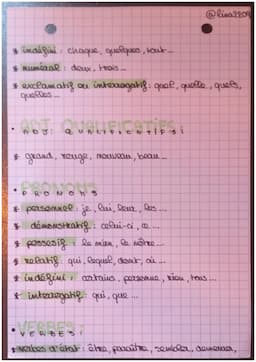 @lina2809
* indéfini : chaque, quelques, tout...
* numéral : deux, trois...
* exclamatif ou interrogatif : quel, quelle, quels,
quelles...
• ADJ QUALIFICATIFS :
* grand, rouge, nouveau, beau...
• PRONOMS
* personnel : je, lui, leur, les...
* démonstratif : celui-ci, ce...
* possessif : le mien, le nôtre...
* relatif : qui, lequel, dont, où...
* indéfini : certains, personne, rien, tous...
* interrogatif : qui, que...
• VERBES :
* verbes d'état : être, paraître, sembler, demeurer,